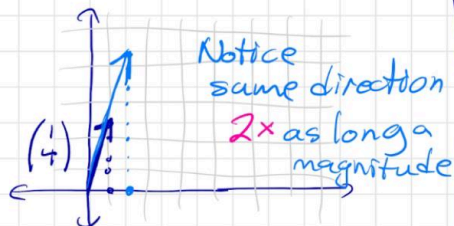 Notice
same direction
2x as long a
magnitude
(1
4)